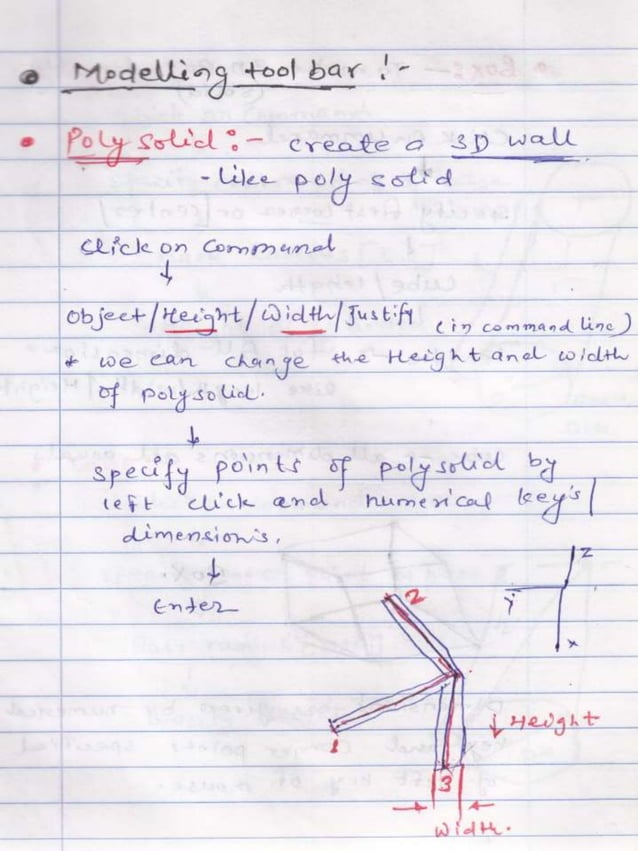 Modelling tool bar :-
Poly solid :- create a 3D wall
- like poly solid
click on command
↓
object/Height/Width/Justify (in command line)
* we can change the Height and width
of polysolid.
↓
specify points of polysolid by
left click and numerical key's/
dimension's.
↓
Enter
Z
Y
X
2
1
3
↓ Height
→ ←
width.